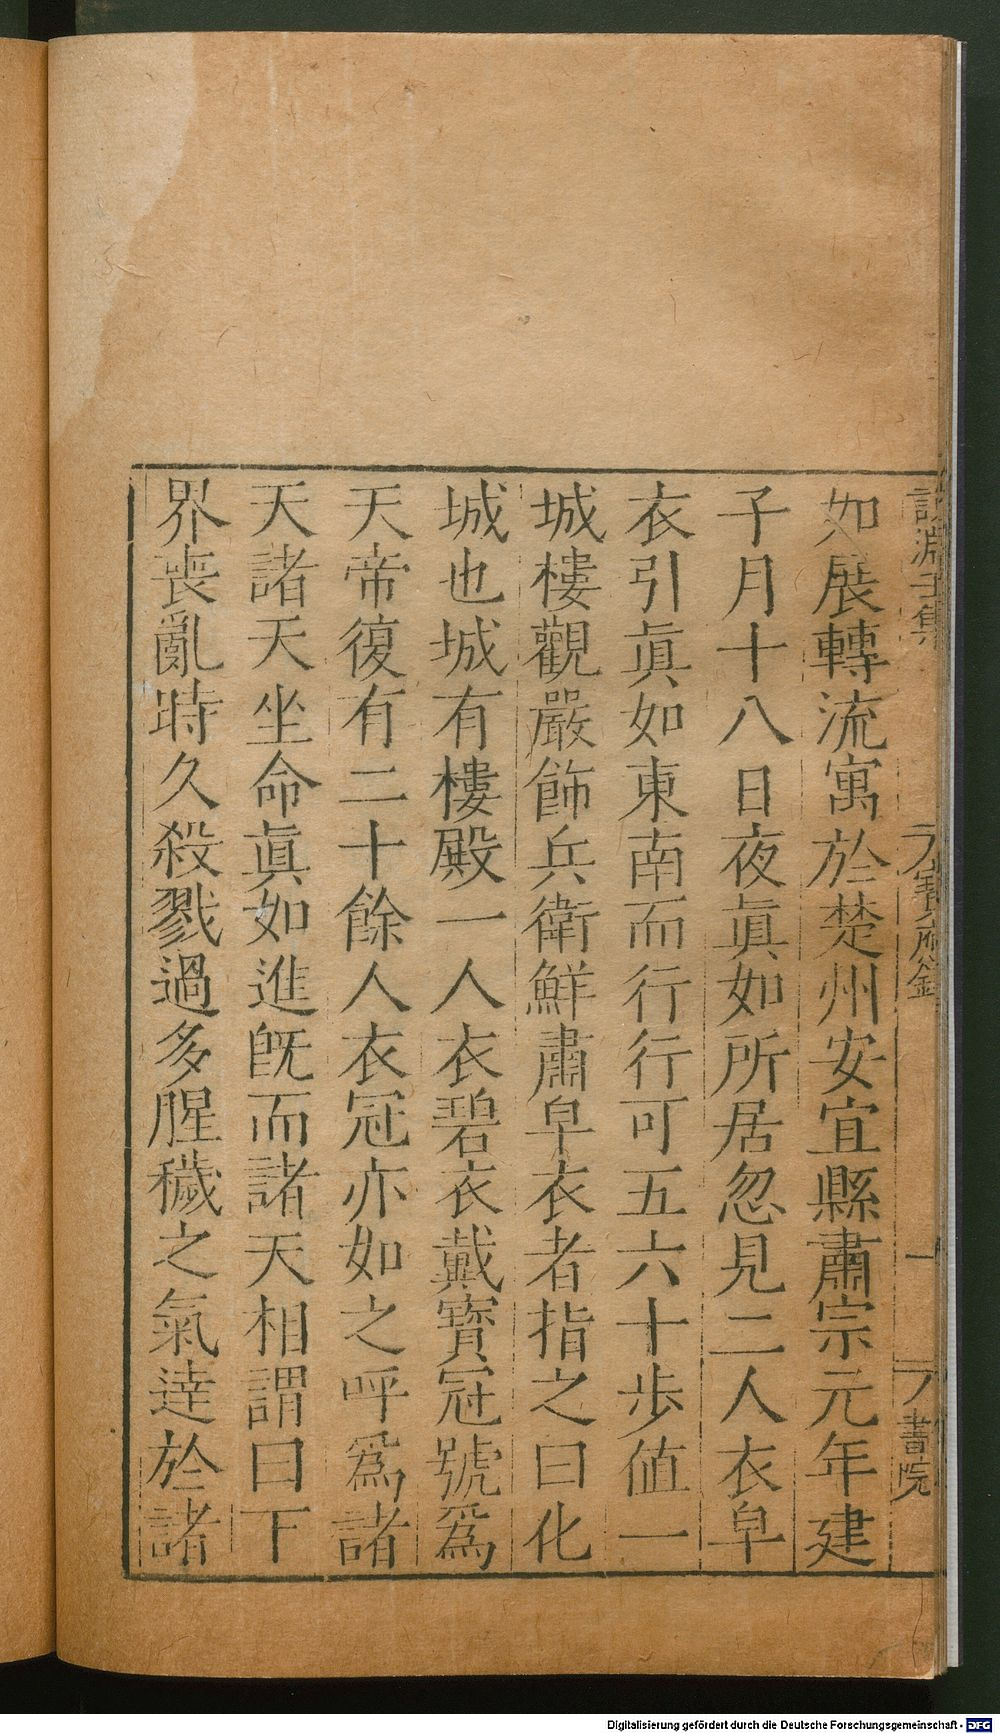 如展轉流寓於楚州安宜縣肅宗元年建
子月十八日夜眞如所居忽見二人衣皁
衣引眞如東南而行行可五六十歩値一
城樓觀嚴飾兵衛鮮肅皁衣者指之曰化
城也城有樓殿一人衣碧衣戴寶冠號爲
天帝復有二十餘人衣冠亦如之呼爲諸
天諸天坐命眞如進旣而諸天相謂曰下
界喪亂時久殺戮過多腥穢之氣達於諸
書院
Digitalisierung gefördert durch die Deutsche Forschungsgemeinschaft - DFG